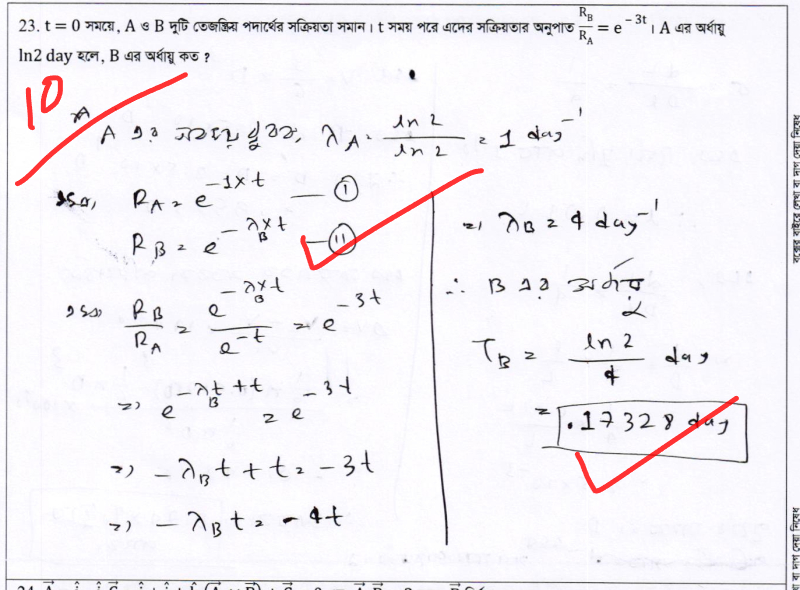 23. t = 0 সময়ে, A ও B দুটি তেজস্ক্রিয় পদার্থের সক্রিয়তা সমান। t সময় পরে এদের সক্রিয়তার অনুপাত R_B/R_A = e^{-3t}। A এর অর্ধায়ু
ln2 day হলে, B এর অর্ধায়ু কত ?
10
A এর ক্ষয় ধ্রুবক, λ_A = ln 2/ln 2 = 1 day^{-1}
এখন, R_A = e^{-1×t} — (I)
R_B = e^{-λ_B×t} — (II)
এখন R_B/R_A = e^{-λ_B×t}/e^{-t} = e^{-3t}
=> e^{-λ_B t + t} = e^{-3t}
=> -λ_B t + t = -3t
=> -λ_B t = -4t
=> λ_B = 4 day^{-1}
∴ B এর অর্ধায়ু
T_B = ln 2/4 day
= .17328 day
বক্সের বাইরে লেখা বা দাগ দেয়া নিষেধ